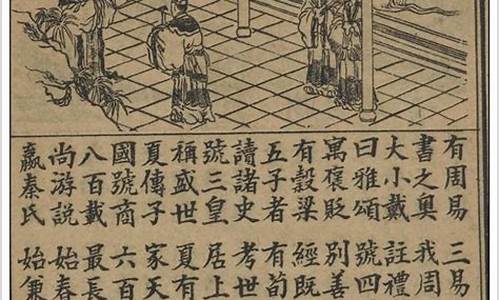 有周易三易
書之奧我周
大小戴註禮
曰雅頌號四
寓褒貶別善
有穀梁經既
五子者有荀
讀諸史考世
號三皇居上
稱盛世夏有
夏傳子家天
國號商六百
八百載最長
尚游說始春
嬴秦氏始兼